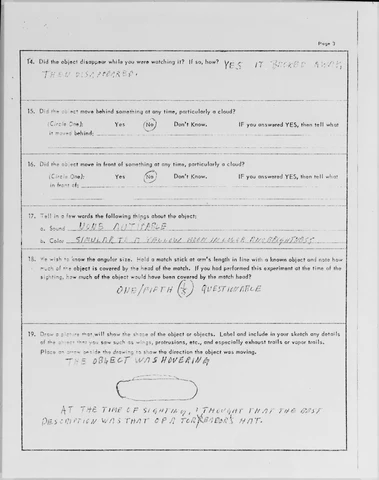 Page 3
14. Did the object disappear while you were watching it? If so, how? YES IT BACKED AWAY,
THEN DISAPPEARED.
15. Did the object move behind something at any time, particularly a cloud?
(Circle One): Yes No Don't Know. IF you answered YES, then tell what
it moved behind:
16. Did the object move in front of something at any time, particularly a cloud?
(Circle One): Yes No Don't Know. IF you answered YES, then tell what
in front of:
17. Tell in a few words the following things about the object:
a. Sound NONE AUDITABLE
b. Color SIMULAR TO A YELLOW NEON IN COLOR AND BRIGHTNESS
18. We wish to know the angular size. Hold a match stick at arm's length in line with a known object and note how
much of the object is covered by the head of the match. If you had performed this experiment at the time of the
sighting, how much of the object would have been covered by the match head?
ONE/FIFTH (1/5) QUESTIONABLE
19. Draw a picture that will show the shape of the object or objects. Label and include in your sketch any details
of the object that you saw such as wings, protrusions, etc., and especially exhaust trails or vapor trails.
Place an arrow beside the drawing to show the direction the object was moving.
THE OBJECT WAS HOVERING
AT THE TIME OF SIGHTING, I THOUGHT THAT THE BEST
DESCRIPTION WAS THAT OF A HAT.